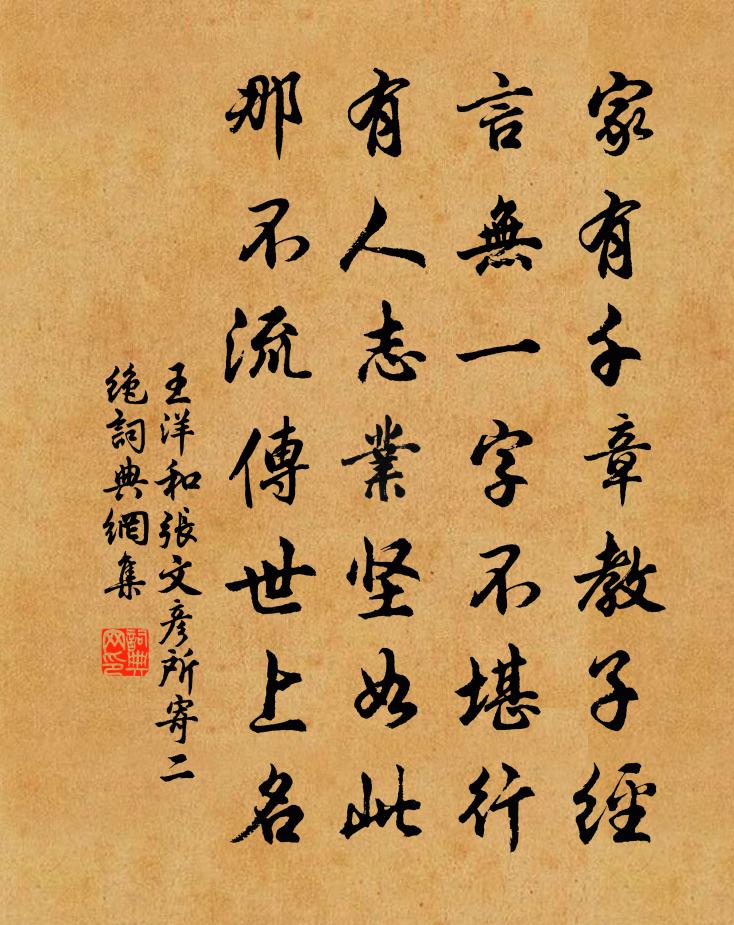 家有千章教子經
言無一字不堪行
有人志業坚如此
那不流傳世上名
王洋和張文彦所寄二
绝詞典網集
詞典网印